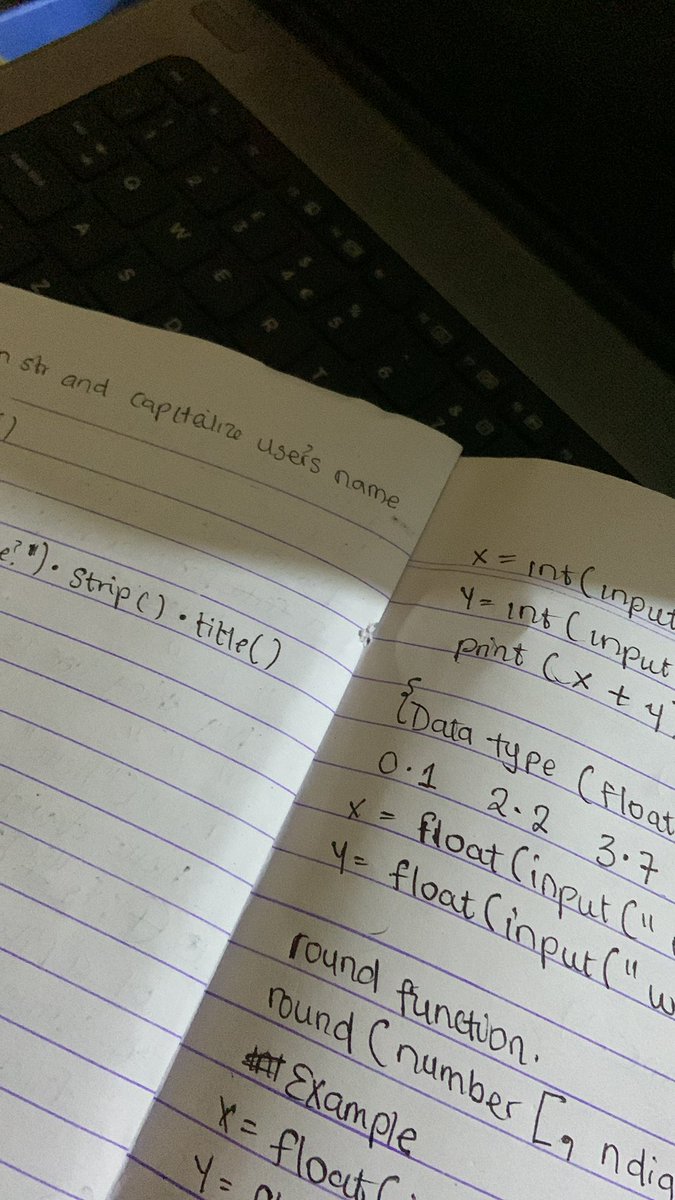 n str and capitalize user's name
()
e?").strip().title()
x = int(input
y = int(input
print (x + y)
{Data type (float
0.1 2.2 3.7
x = float(input("
y = float(input("w
round function.
round (number [, ndig
Example
x = float(
y =